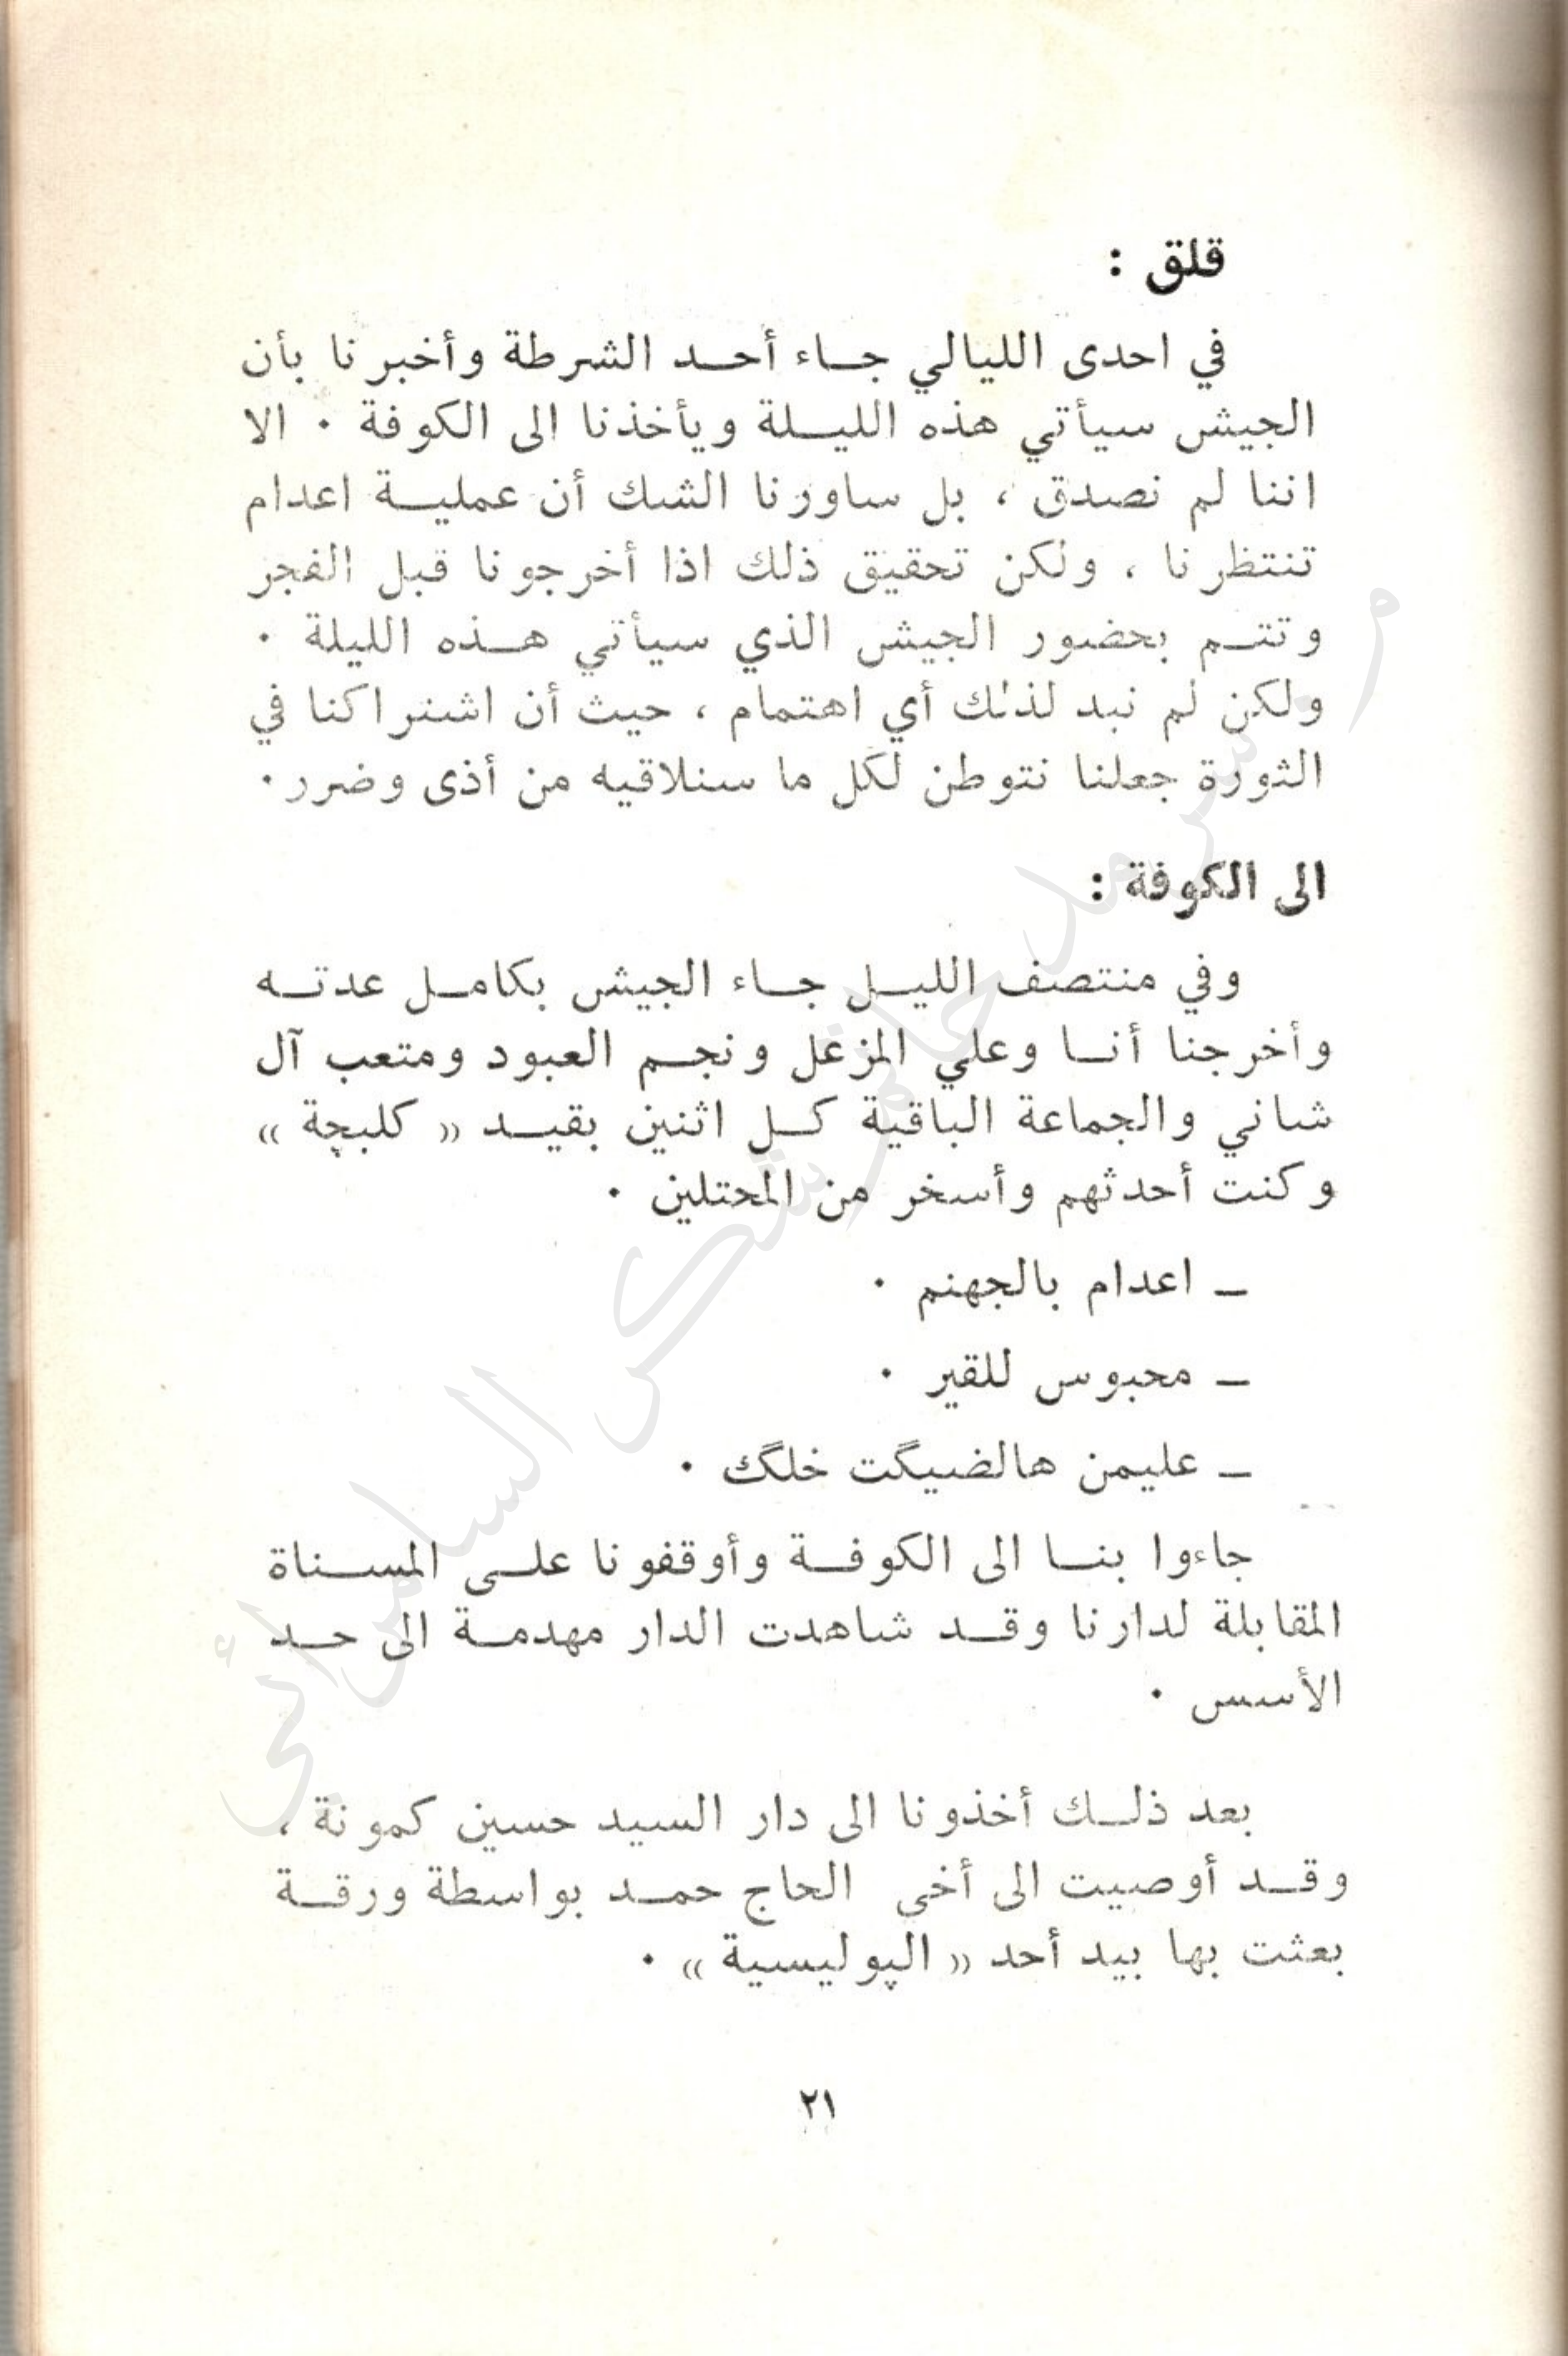 قلق :
في احدى الليالي جاء أحد الشرطة وأخبرنا بأن
الجيش سيأتي هذه الليلة ويأخذنا الى الكوفة ٠ الا
اننا لم نصدق ، بل ساورنا الشك أن عملية اعدام
تنتظرنا ، ولكن تحقيق ذلك اذا أخرجونا قبل الفجر
وتتم بحضور الجيش الذي سيأتي هذه الليلة ٠
ولكن لم نبد لذلك أي اهتمام ، حيث أن اشتراكنا في
الثورة جعلنا نتوطن لكل ما سنلاقيه من أذى وضرر ٠
الى الكوفة :
وفي منتصف الليل جاء الجيش بكامل عدته
وأخرجنا أنا وعلي المزعل ونجم العبود ومتعب آل
شاني والجماعة الباقية كل اثنين بقيد « كلبچة »
وكنت أحدثهم وأسخر من المحتلين ٠
ــ اعدام بالجهنم ٠
ــ محبوس للقير ٠
ــ عليمن هالضيگت خلگك ٠
جاءوا بنا الى الكوفة وأوقفونا على المسناة
المقابلة لدارنا وقد شاهدت الدار مهدمة الى حد
الأسس ٠
بعد ذلك أخذونا الى دار السيد حسين كمونة ،
وقد أوصيت الى أخي الحاج حمد بواسطة ورقة
بعثت بها بيد أحد « الپوليسية » ٠
٢١